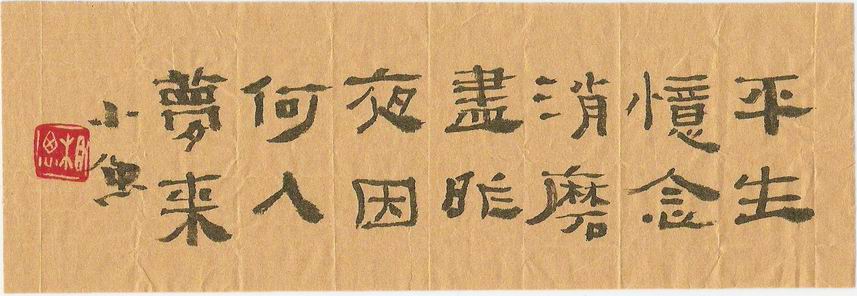 平生
憶念
消磨
盡昨
夜因
何入
夢来
小
相思